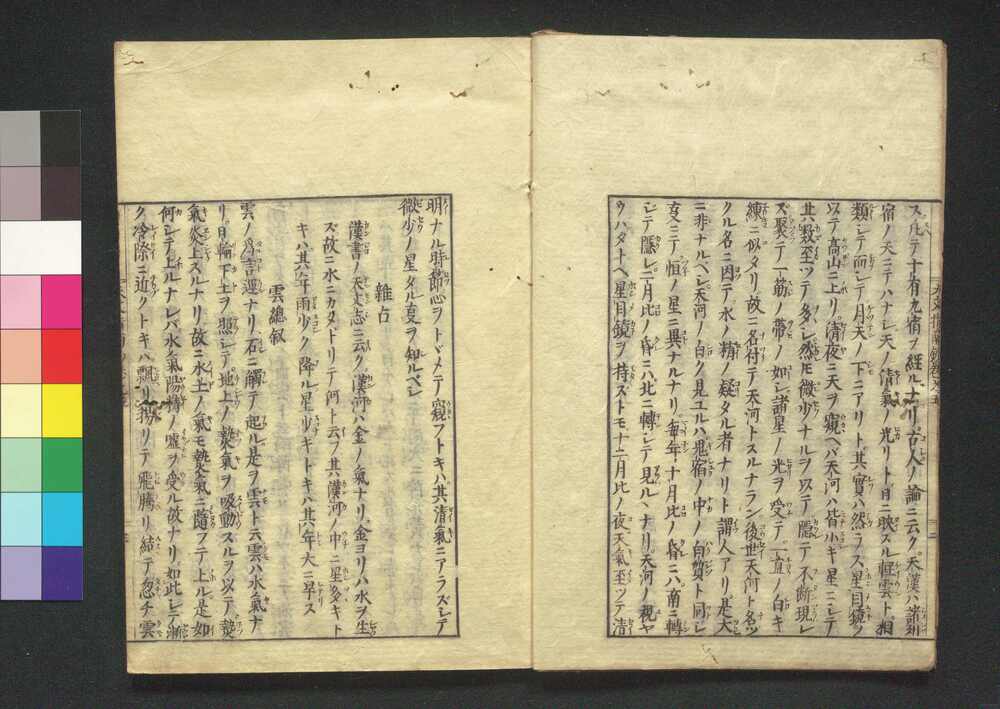 ス凡テ十有九宿ヲ經ルナリ古人ノ論ニ云ク天漢ハ諸列
宿ノ天ニテハナレ天ノ清氣ノ光リト日ニ映スル輕雲ト相
類シ而レテ月天ノ下ニアリト其實ハ然ラス星目鏡ヲ
以テ高山ニ上リ清夜ニ天ヲ窺ヘバ天河ハ皆小キ星ニレテ
其数至ツテ多レ然トモ微少ナルヲ以テ隱テ不断現レ
ズ聚テ一筋ノ帶ノ如レ諸星ノ光ヲ受テ一直ノ白キ
練ニ似タリ故ニ名付テ天河トスルナラン後世天河ト名ツ
クル名ニ因テ水ノ精ノ凝タル者ナリト謂人アリ是大
ニ非ナルベレ天河ノ白ク見エルハ鬼宿ノ中ノ白質ト同レ
支ニテ恒ノ星ニ異ナルナリ毎年十月比ノ昏ニハ南ニ轉
シテ隱レ二月比ノ昏ニハ北ニ轉レテ見ルヘナリ天河ノ視ヤ
ウハタトヘ星目鏡ヲ持ズトモ十二月比ノ夜天氣至ツテ清
明ナル時節心ヲトヾメテ窺フトキハ其清氣ニアラズレテ
微少ノ星タル支ヲ知ルベレ
雜占
漢書ノ天文志ニ云ク漢河ハ金ノ氣ナリ金ヨリハ水ヲ生
ズ故ニ水ニカタトリテ河ト云フ其漢河ノ中ニ星多キト
キハ其年雨少ク降ル星少キトキハ其年大ニ旱ス
雲總叙
雲ノ為言運ナリ石ニ觸テ起ル是ヲ雲ト云雲ハ水氣ナ
リ日輪下土ヲ照レテ地上ノ熱氣ヲ吸動スルヲ以テ熱
氣炎上スルナリ故ニ水土ノ氣モ熱氣ニ隨フテ上ル是如
何レテ上ルナレバ水氣陽精ノ嘘ヲ受ル故ナリ如此レテ漸
ク冷際ニ近クトキハ飄リ揚リテ飛騰リ結テ忽チ雲